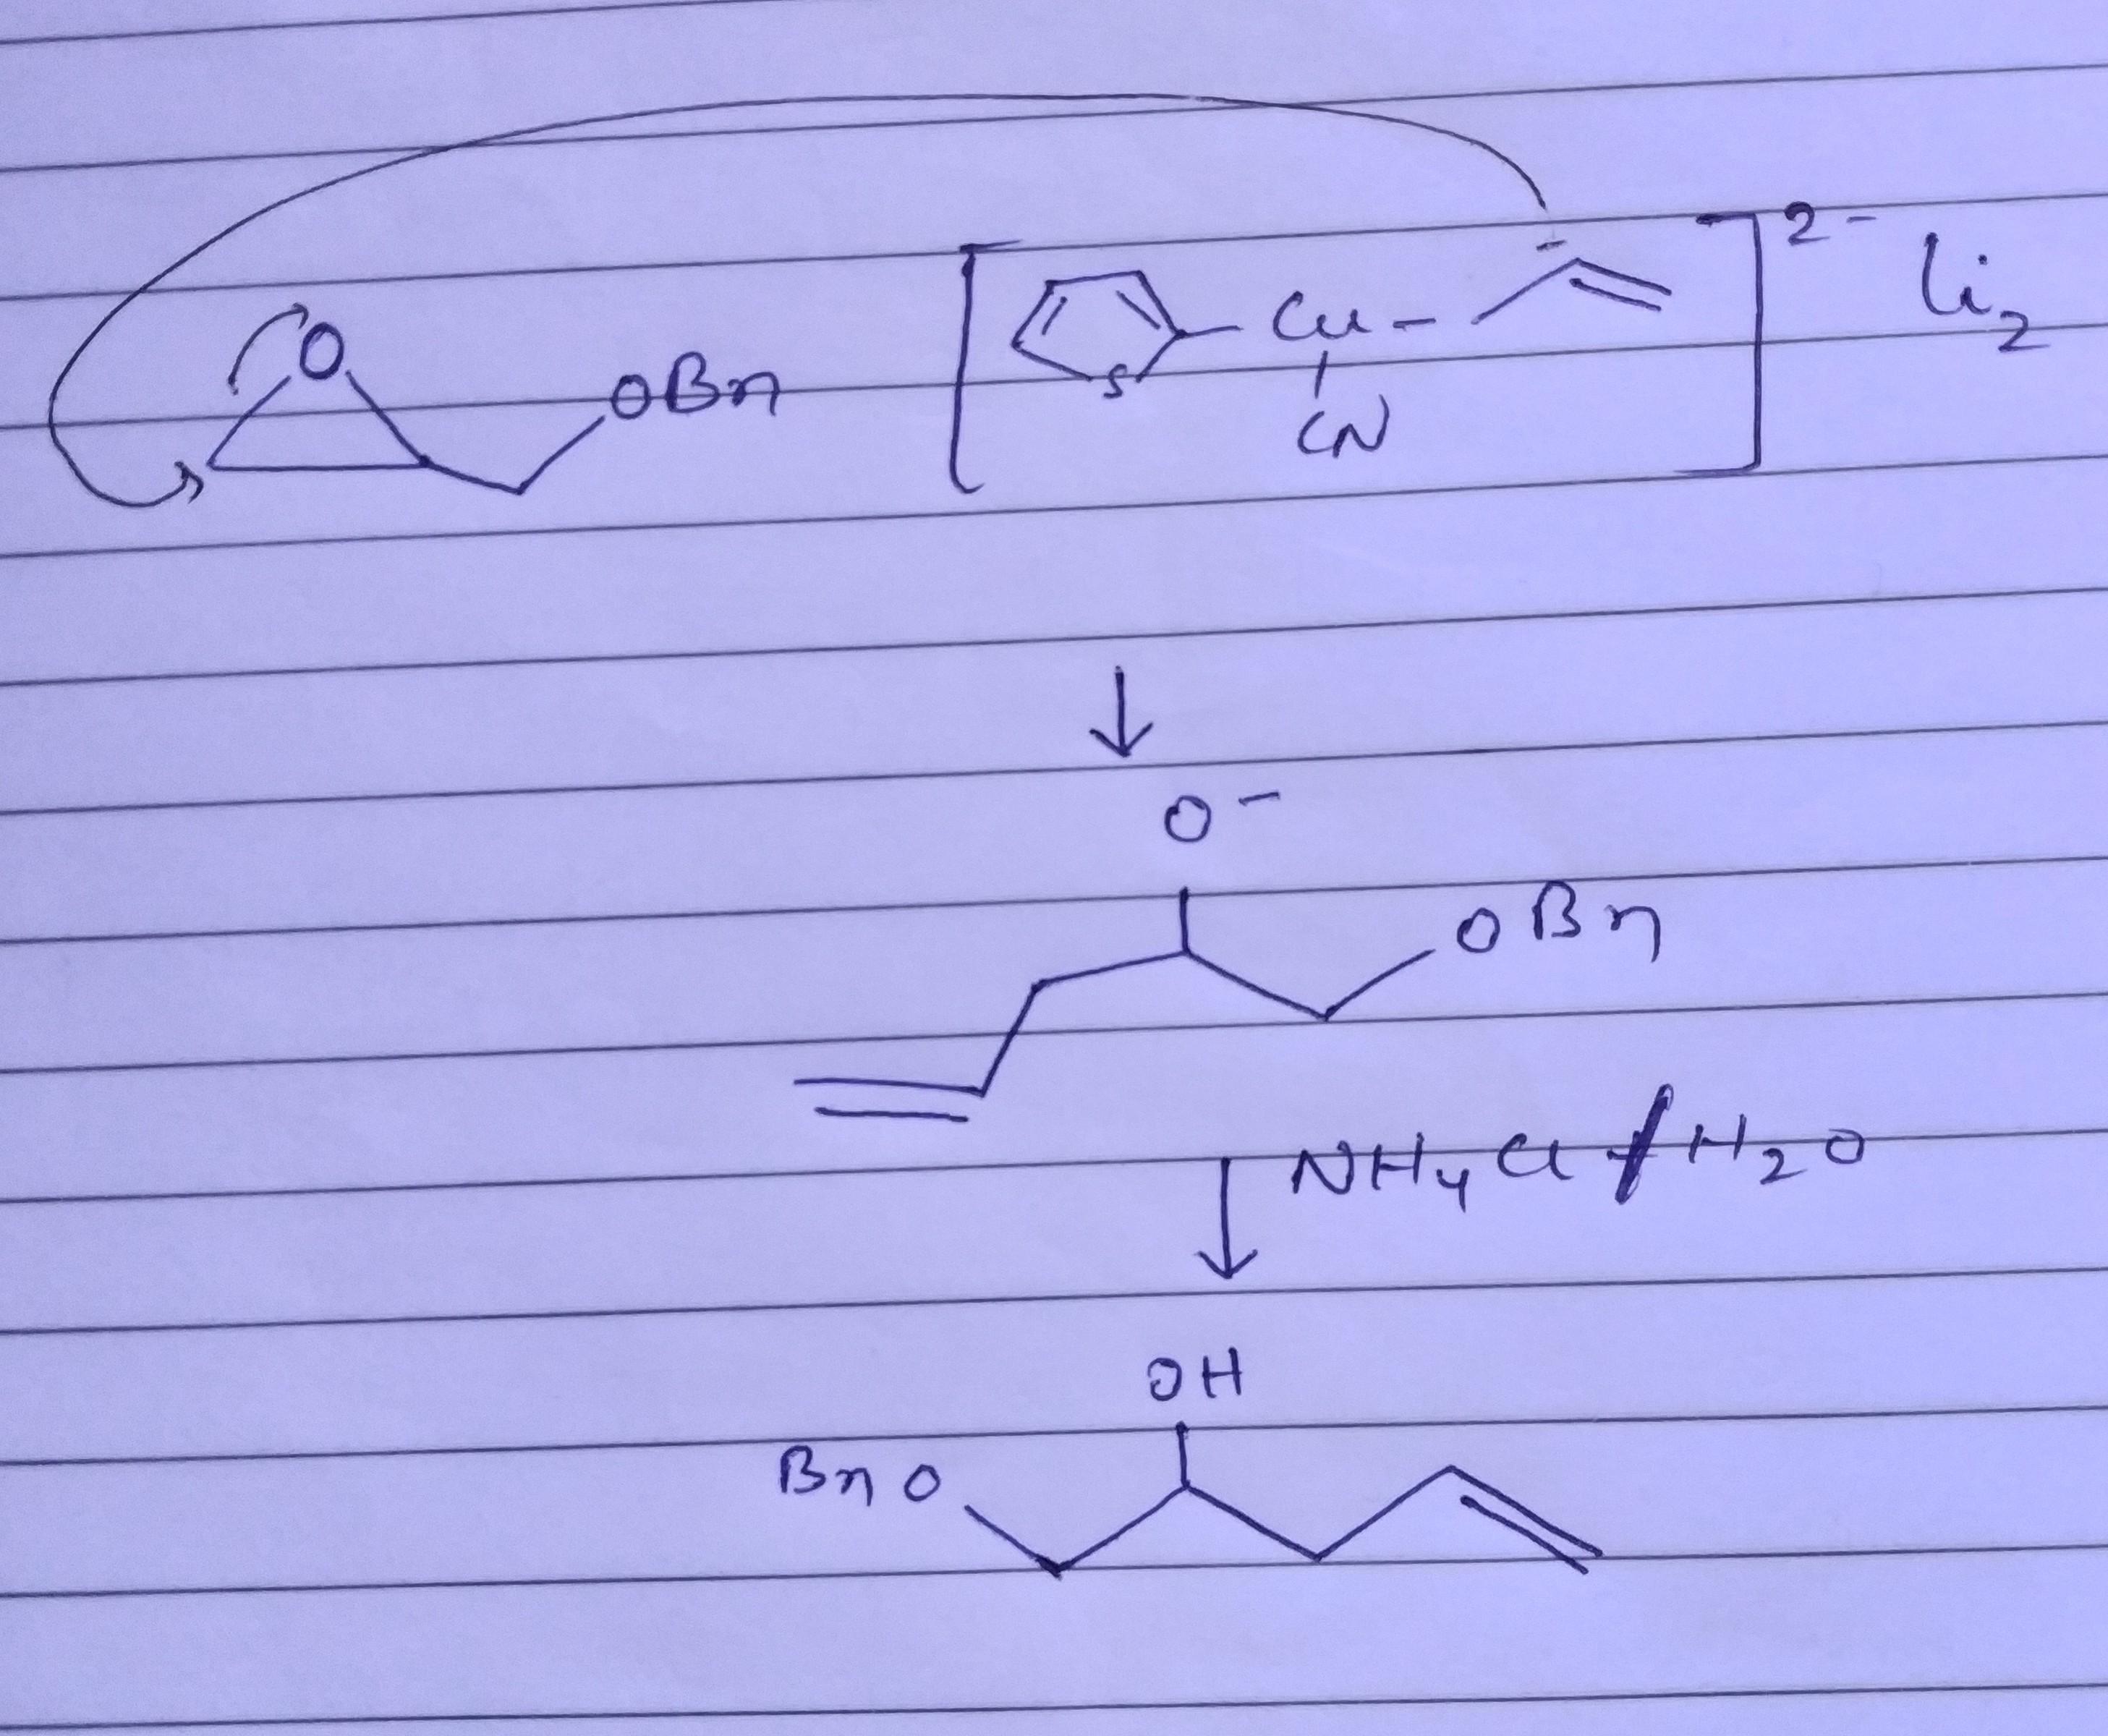 O OBn [ S Cu - CN ]2- Li2
O-
OBn
NH4Cl / H2O
OH
BnO